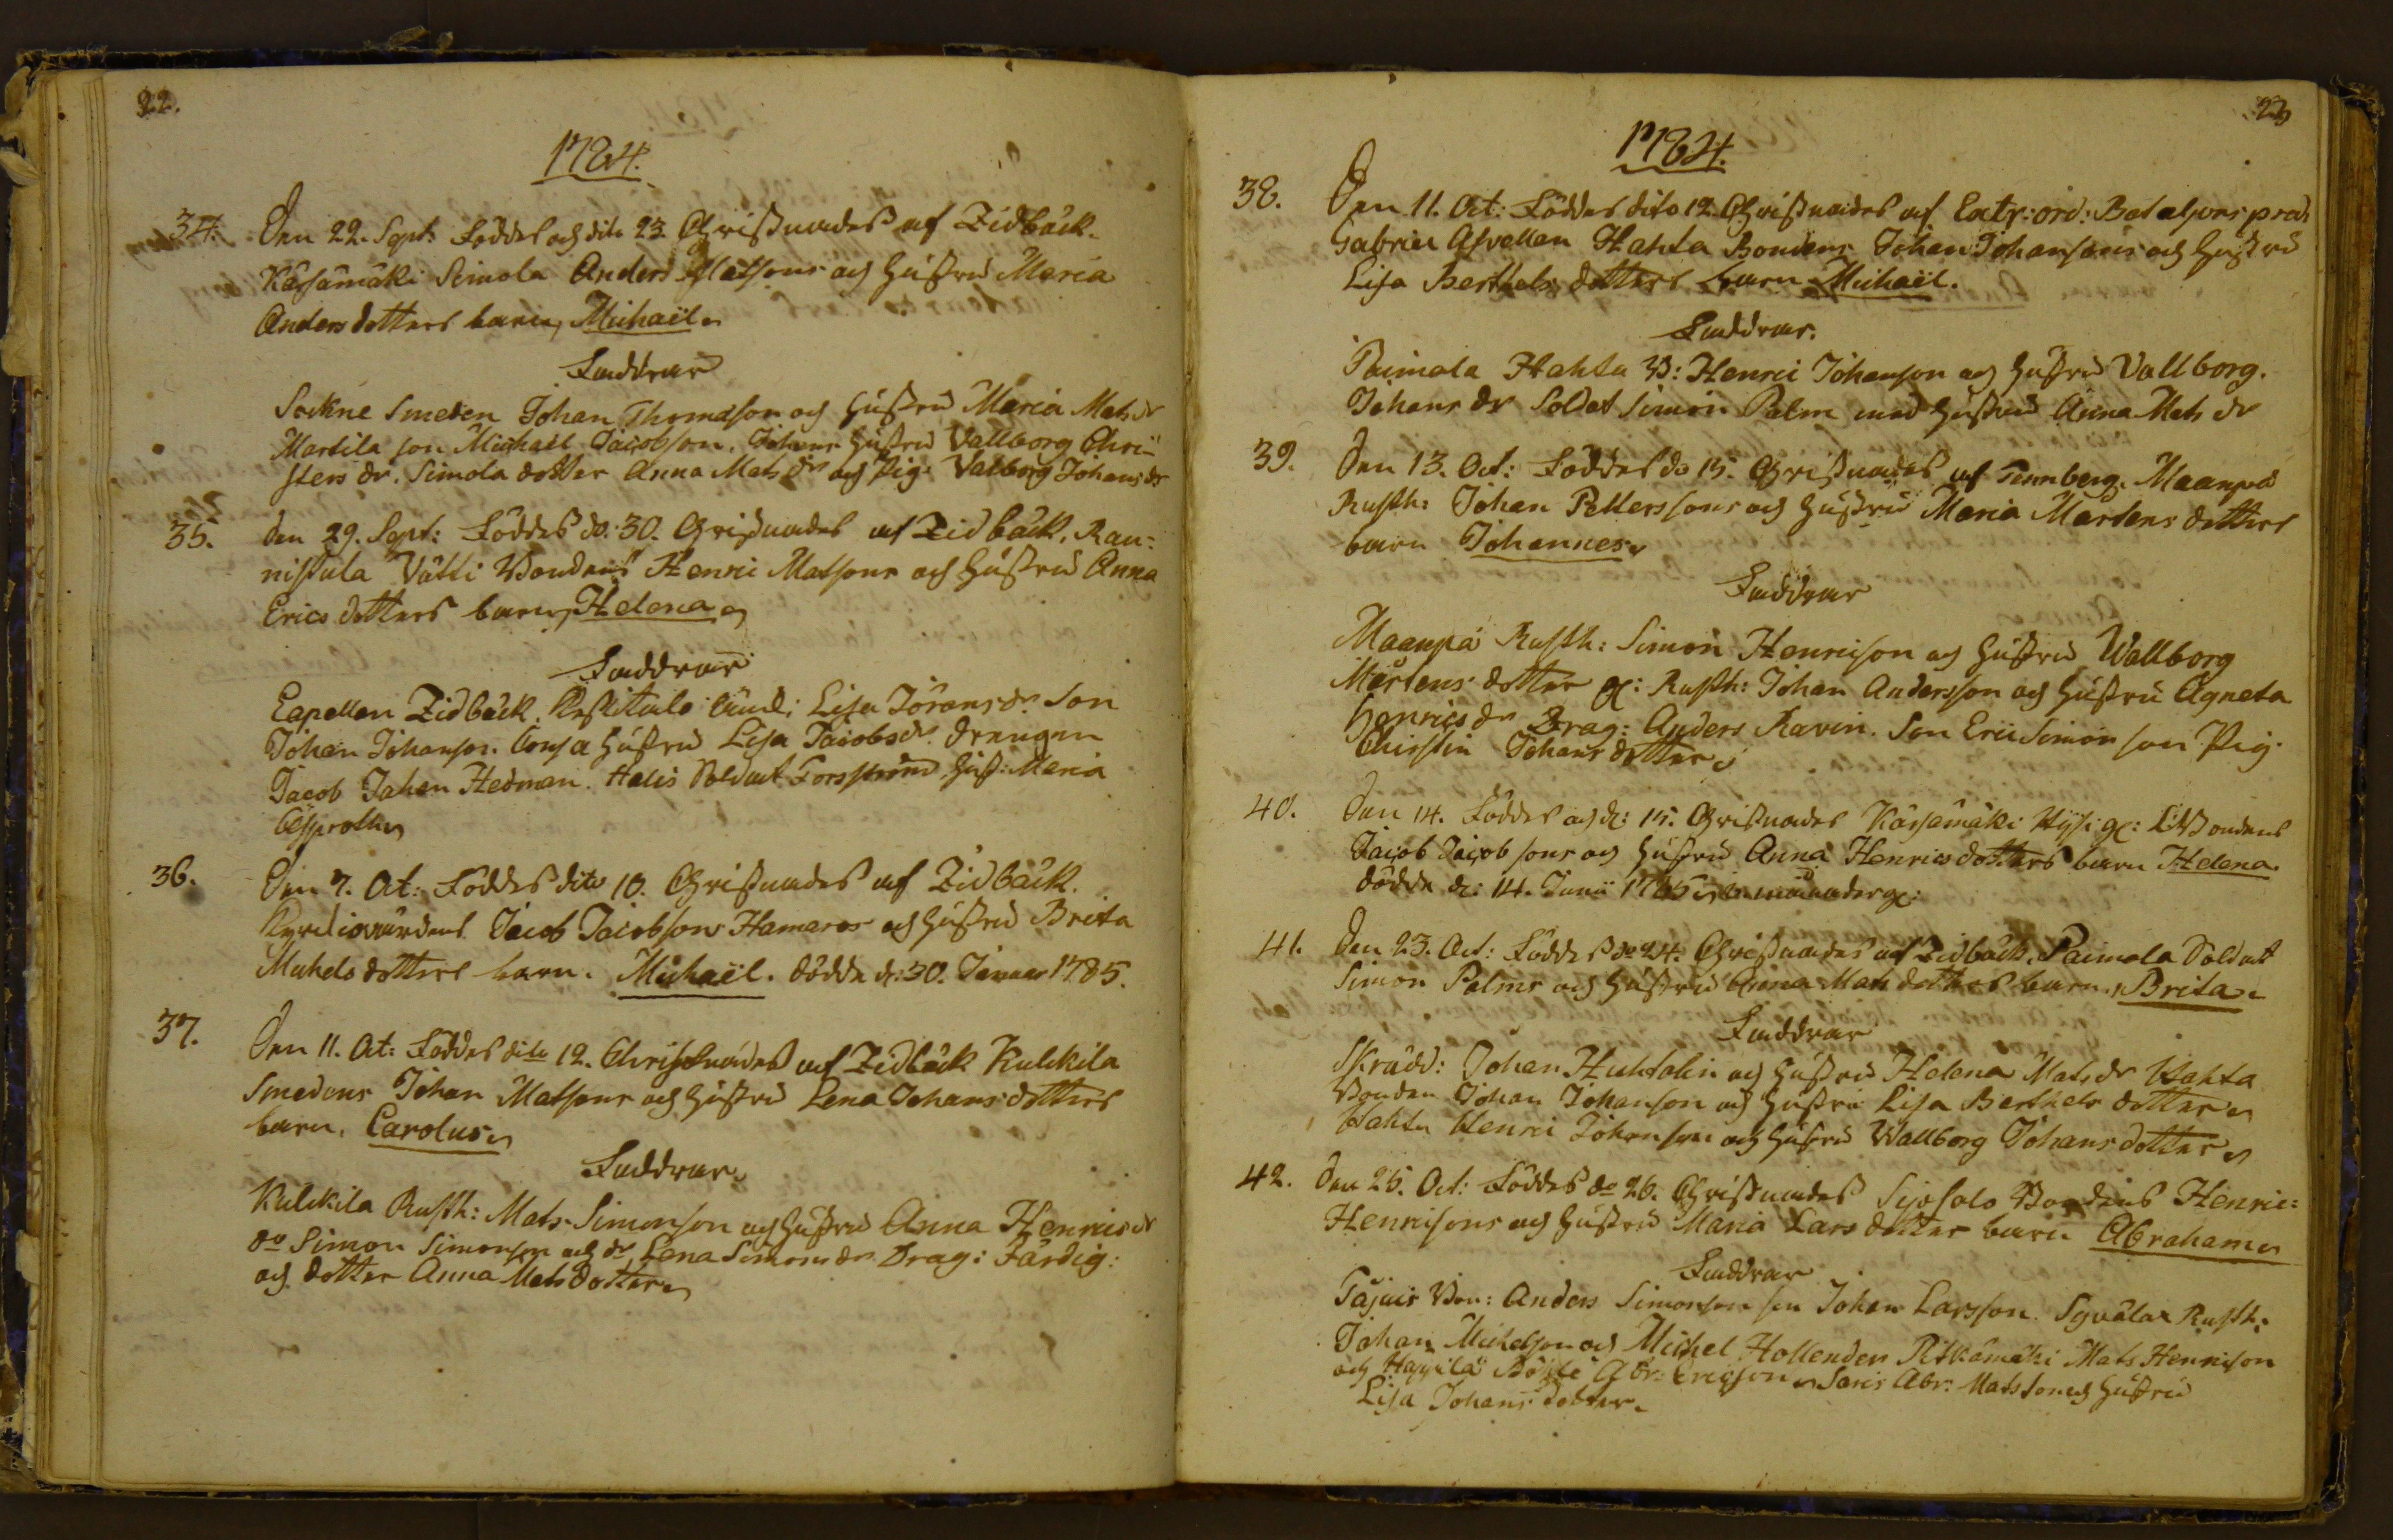 22.
1784.
34. Den 22. Sept: Föddes och dito 23. Christnades af Zidbäck.
Käräsmäki Simola Anders Matsons och Hustru Maria
Anders dotters barn, Michaël.
Faddrar
Sockne Smeden Johan Thomasson och Hustru Maria Mats dr
Martila son Michaël Jacobson. Johans Hustru Vallborg Chri-
sters dr. Simola dotter Anna Mats dr och Pig: Valborg Johans dr
35. Den 29. Sept: Föddes do. 30. Christnades af Zidbäck, Rau-
nistula Vätti Bondens Henric Matsons och Hustru Anna
Erics dotters barn, Helena
Faddrar
Capellan Zidbäck. Lisa Jörans dr. Son
Johan Johanson. Hustru Lisa Jacobs dr. Drängen
Jacob Johan Hedman. Halis Soldat Forsström Hust: Maria
36. Den 7. Oct: Föddes dito 10. Christnades af Zidbäck.
Jacob Jacobsons Hamaros och Hustru Brita
Michels dotters barn. Michaël. dödde d: 30. Januar 1785.
37. Den 11. Oct: Föddes dito 12. Christnades af Zidbäck Kulckila
Smedens Johan Matsons och Hustru Lena Johans dotters
barn. Carolus
Faddrar
Kulckila Rusth: Mats Simonson och Hustru Anna Henrics dr
do Simon Simonson och dr Lena Simons dr. Drag: Färdig:
och dotter Anna Mats dotter
23
1784.
38. Den 11. Oct: Föddes dito 12. Christnades af Extr: ord: Bataljons pred:
Gabriel Hahta Bondens Johan Johansons och Hustru
Lisa Berthels dotters barn Michaël.
Faddrar.
Paimala Hahta B: Henric Johanson och Hustru Vallborg
Johans dr Soldat Simon Palm med Hustru Anna Mats dr
39. Den 13. Oct: Föddes do 15. Christnades af Tennberg. Maanpä
Rusth: Johan Pettersons och Hustru Maria Mårtens dotters
barn Johannes
Faddrar
Maanpä Rusth: Simon Henricson och Hustru Wallborg
Mårtens dotter Rusth: Johan Andersson och Hustru Agneta
Henrics dr Drag: Anders Ravin. Son Eric Simon son Pig:
Christin Johans dotter
40. Den 14. Föddes och d: 15. Christnades Käräsmäki Bondens
Jacob Jacobsons och Hustru Anna Henrics dotters barn Helena.
dödde d: 14. Junii 1785
41. Den 23. Oct: Föddes do 24. Christnades af Zidbäck. Paimala Soldat
Simon Palms och Hustru Anna Mats dotters barn, Brita
Faddrar
Skrädd: Johan Huhtolin och Hustru Helena Mats dr Hahta
Bonden Johan Johanson och Hustru Lisa Berthels dotter
Hahta Henric Johanson och Hustru Wallborg Johans dotter
42. Den 25. Oct: Föddes do 26. Christnades Sipsalo Bondens Henric
Henricsons och Hustru Maria Lars dotter barn Abraham
Faddrar
Bon: Anders Simonson son Johan Larsson. Rusth:
Johan Michelson och Michel Hollender Pitkämäki Mats Henricson
och Abr: Ericson Saris Abr: Matsson och Hustru
Lisa Johans dotter